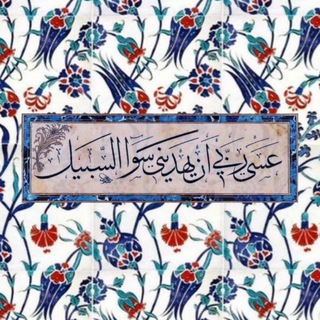 عسى ربي أن يهديني سواء السبيل